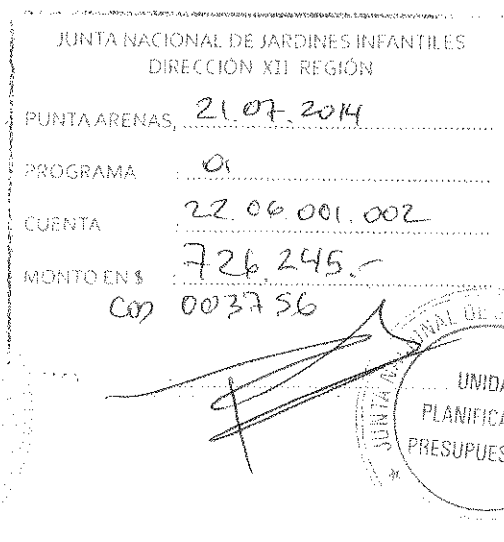 JUNTA NACIONAL DE JARDINES INFANTILES
DIRECCIÓN XII REGIÓN
PUNTA ARENAS, 21.07.2014
PROGRAMA : 01
CUENTA : 22.06.001.002
MONTO EN $ : 726.245.-
003756
JUNTA NAL DE J
UNIDA
PLANIFICA
PRESUPUES